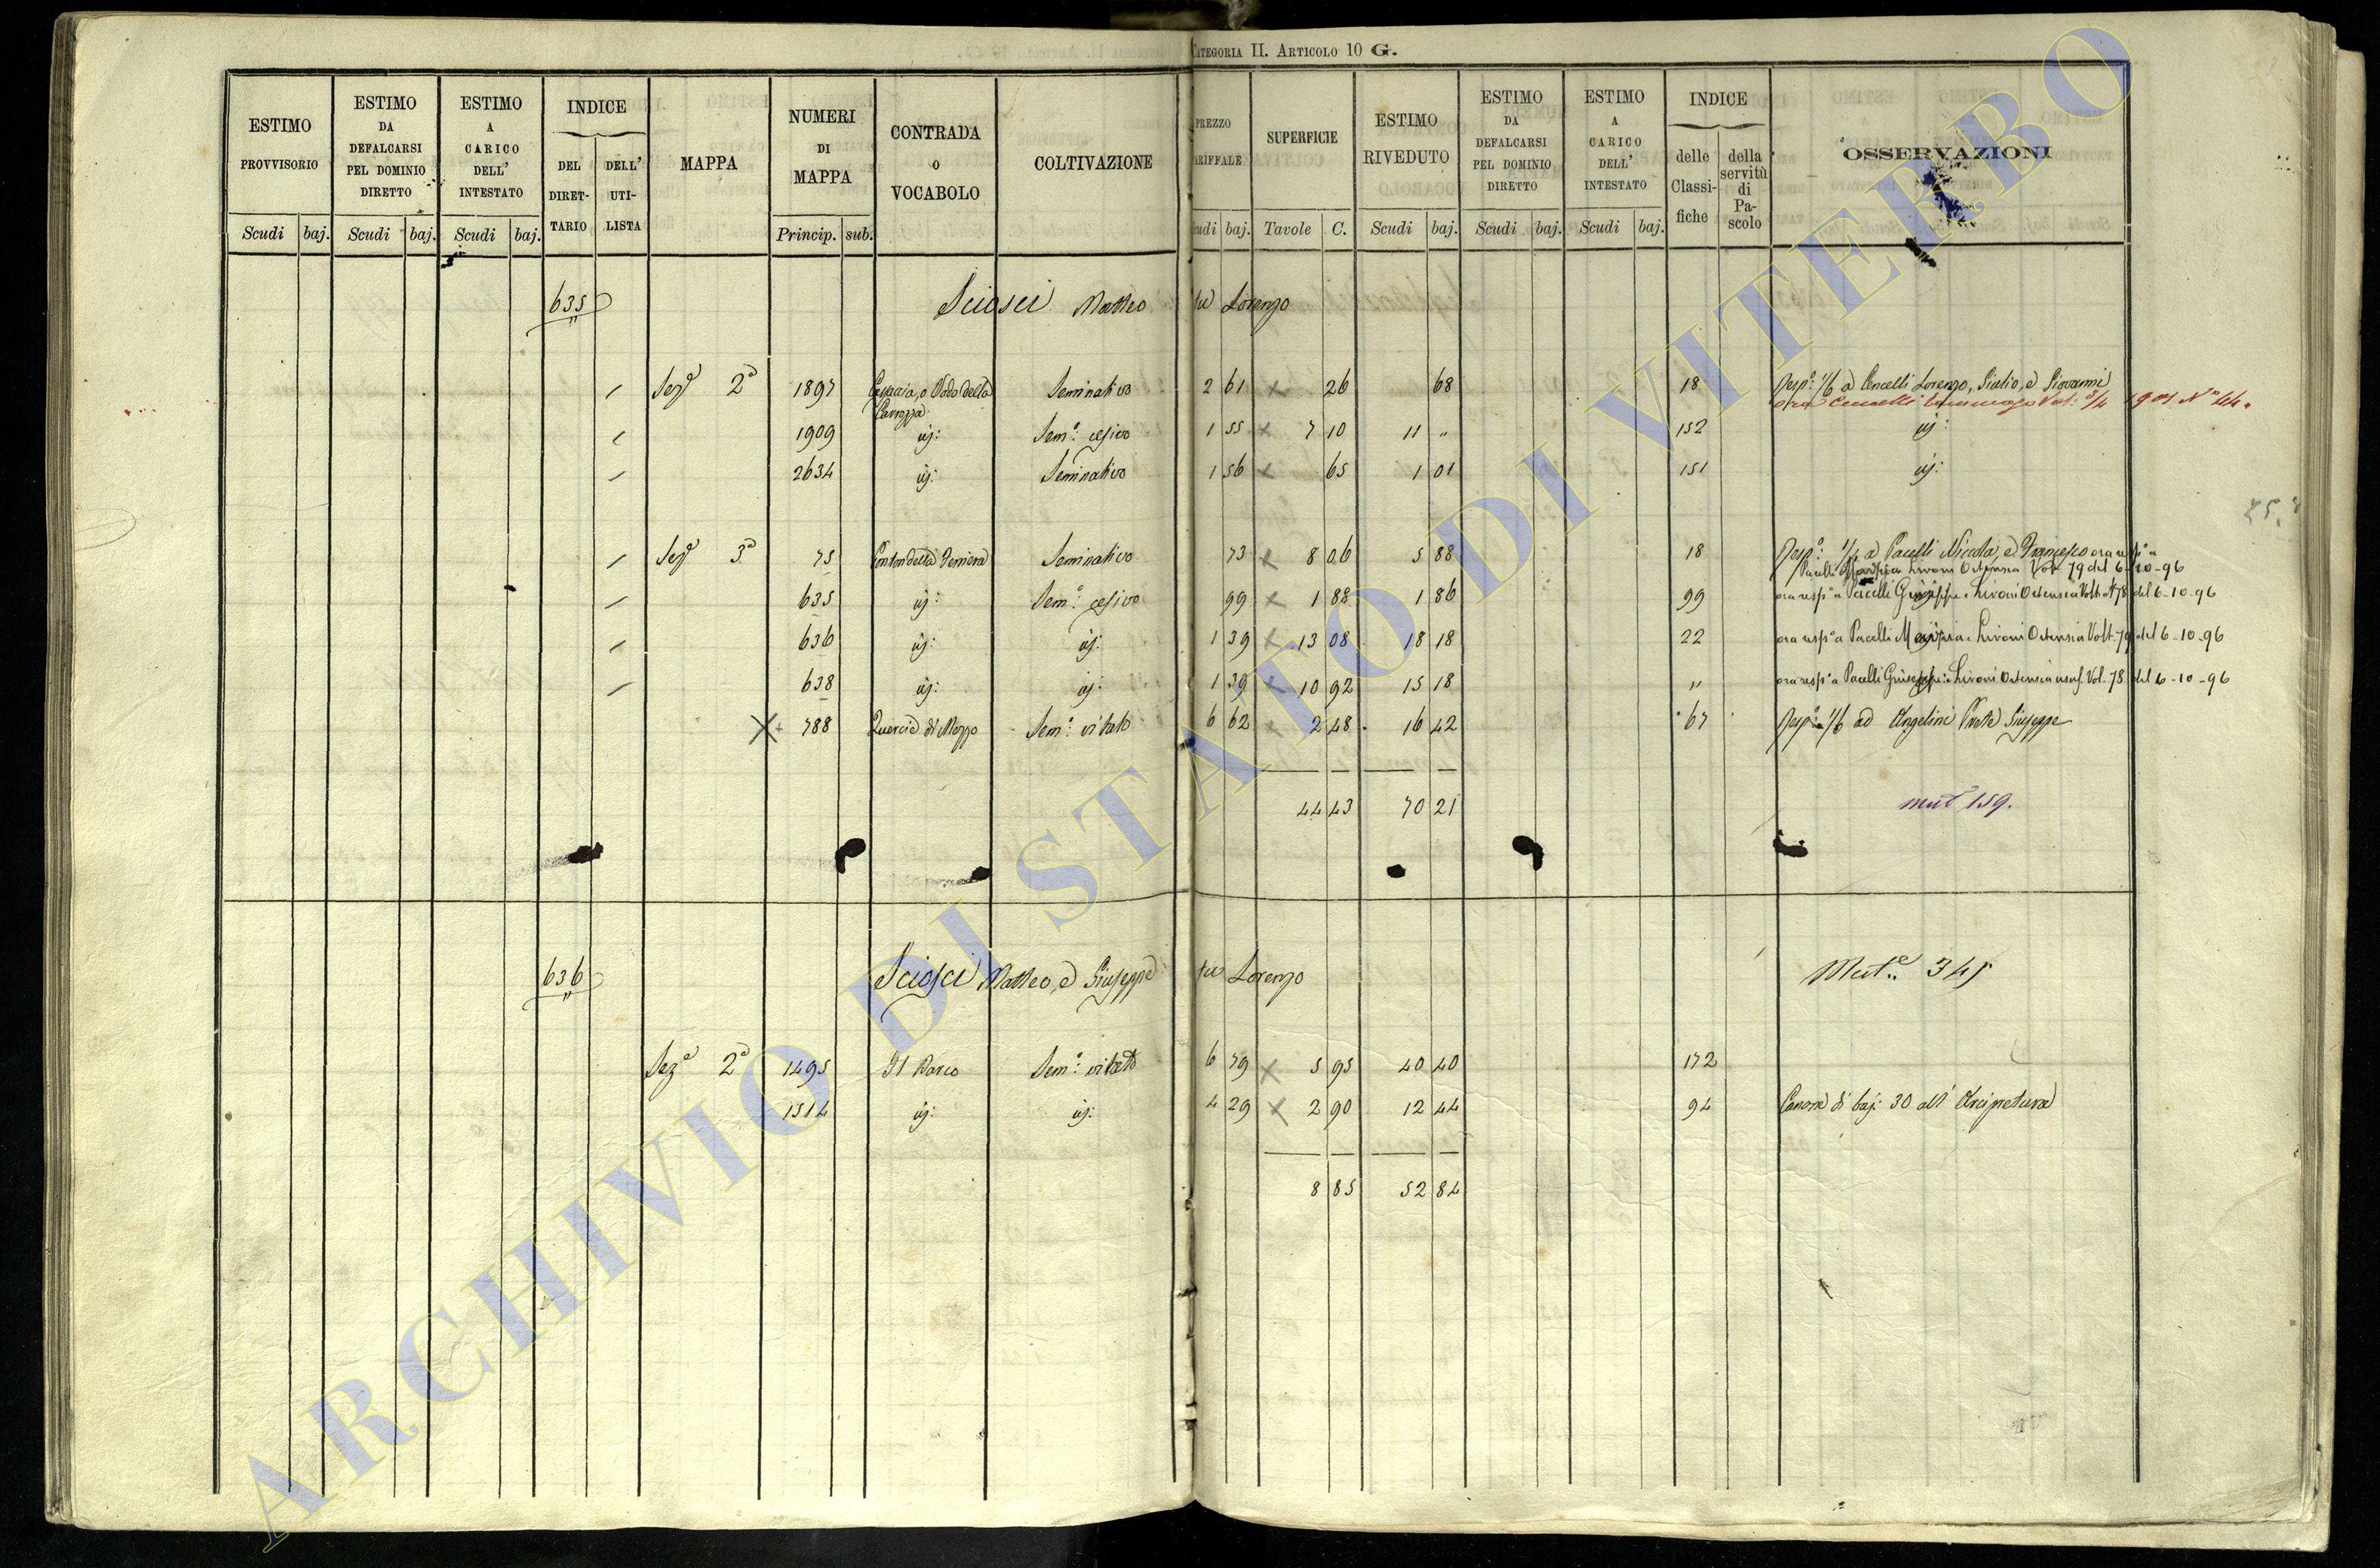 CATEGORIA II. ARTICOLO 10 G.
ESTIMO PROVVISORIO Scudi baj.
ESTIMO DA DEFALCARSI PEL DOMINIO DIRETTO Scudi baj.
ESTIMO A CARICO DELL' INTESTATO Scudi baj.
INDICE DEL DIRETTARIO DELL' UTILISTA
MAPPA
NUMERI DI MAPPA Princip. sub.
CONTRADA O VOCABOLO
COLTIVAZIONE
PREZZO TARIFFALE Scudi baj.
SUPERFICIE Tavole C.
ESTIMO RIVEDUTO Scudi baj.
ESTIMO DA DEFALCARSI PEL DOMINIO DIRETTO Scudi baj.
ESTIMO A CARICO DELL' INTESTATO Scudi baj.
INDICE delle Classifiche della servitù di Pascolo
OSSERVAZIONI
635 Sciosci Matteo fu Lorenzo
Sez.e 2a 1897 o Vado della Carrozza Seminativo 2 61 26 68 18 Resp.o 1/6 a Cencelli Lorenzo, Giulio, e Giovanni
ora Cencelli Tommaso Vol. 3/4 1901 N.o 44
1909 idj: Sem.o cesivo 1 55 7 10 11 " 152 idj:
2634 idj: Seminativo 1 56 65 1 01 151 idj:
Sez.e 3a 75 Seminativo 73 8 06 5 88 18 Resp.o 1/4 a Pacelli Nicola, e Francesco ora resp.o a
Pacelli Livoni Ortensia Vol. 79 del 6-10-96
635 idj: Sem.o cesivo 99 1 88 1 86 99 ora resp.o a Pacelli Giuseppe e Livoni Ortensia Volt. 78 del 6-10-96
636 idj: idj: 1 39 13 08 18 18 22 ora resp.o a Pacelli Livoni Ortensia Volt. 79 del 6-10-96
638 idj: idj: 1 39 10 92 15 18 " ora resp.o a Pacelli Giuseppe e Livoni Ortensia usuf. Vol. 78 del 6-10-96
X 788 Quercia di Mezzo Sem.o vitato 6 62 2 48 16 42 67 Resp.o 1/6 ad Angelini Prete Giuseppe
44 43 70 21 mut 159.
636 Sciosci Matteo, e Giuseppe fu Lorenzo Mut.e 345
Sez.e 2a 1495 Il Barco Sem.o vitato 6 79 5 95 40 40 172
1514 idj: idj: 4 29 2 90 12 44 94 Canone di baj: 30 all' Arcipretura
8 85 52 84
ARCHIVIO DI STATO DI VITERBO